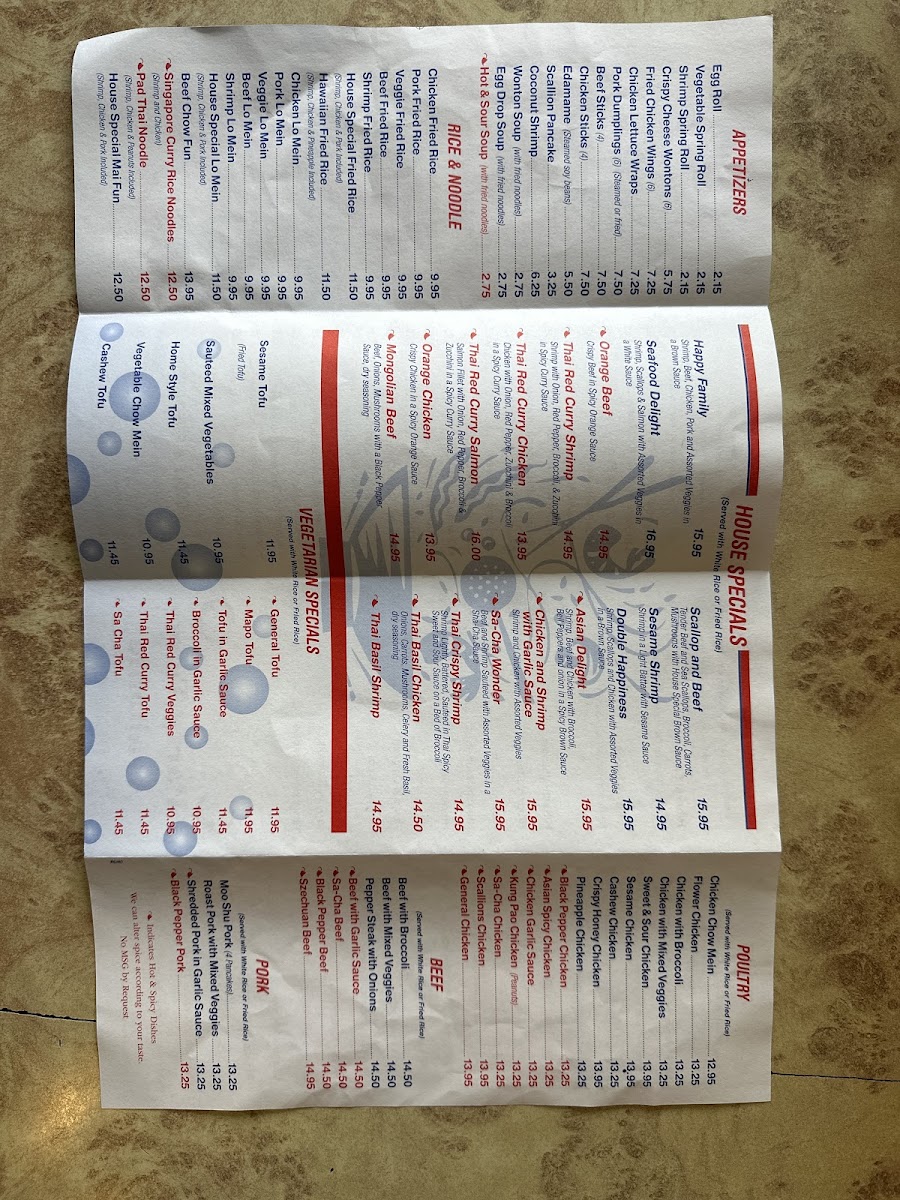 APPETIZERS
Egg Roll 2.15
Vegetable Spring Roll 2.15
Shrimp Spring Roll 2.15
Crispy Cheese Wontons (6) 5.75
Fried Chicken Wings (6) 7.25
Chicken Lettuce Wraps 7.25
Pork Dumplings (6) (Steamed or fried) 7.50
Beef Sticks (4) 7.50
Chicken Sticks (4) 7.50
Edamame (Steamed soy beans) 5.50
Scallion Pancake 3.25
Coconut Shrimp 6.25
Wonton Soup (with fried noodles) 2.75
Egg Drop Soup (with fried noodles) 2.75
Hot & Sour Soup (with fried noodles) 2.75
RICE & NOODLE
Chicken Fried Rice 9.95
Pork Fried Rice 9.95
Veggie Fried Rice 9.95
Beef Fried Rice 9.95
Shrimp Fried Rice 9.95
House Special Fried Rice 11.50
(Shrimp, Chicken & Pork Included)
Hawaiian Fried Rice 11.50
(Shrimp, Chicken & Pineapple Included)
Chicken Lo Mein 9.95
Pork Lo Mein 9.95
Veggie Lo Mein 9.95
Beef Lo Mein 9.95
Shrimp Lo Mein 9.95
House Special Lo Mein 11.50
(Shrimp, Chicken & Pork Included)
Beef Chow Fun 13.95
Singapore Curry Rice Noodles 12.50
(Shrimp and Chicken)
Pad Thai Noodle 12.50
(Shrimp, Chicken & Peanuts Included)
House Special Mai Fun 12.50
(Shrimp, Chicken & Pork Included)
HOUSE SPECIALS
(Served with White Rice or Fried Rice)
Happy Family 15.95
Shrimp, Beef, Chicken, Pork and Assorted Veggies in
a Brown Sauce
Seafood Delight 16.95
Shrimp, Scallops & Salmon with Assorted Veggies in
a White Sauce
Orange Beef 14.95
Crispy Beef in Spicy Orange Sauce
Thai Red Curry Shrimp 14.95
Shrimp with Onion, Red Pepper, Broccoli, & Zucchini
in Spicy Curry Sauce
Thai Red Curry Chicken 13.95
Chicken with Onion, Red Pepper, Zucchini & Broccoli
in a Spicy Curry Sauce
Thai Red Curry Salmon 16.00
Salmon Fillet with Onion, Red Pepper, Brocchi &
Zucchini in a Spicy Curry Sauce
Orange Chicken 13.95
Crispy Chicken in a Spicy Orange Sauce
Mongolian Beef 14.95
Beef, Onions, Mushrooms with a Black Pepper
Sauce, dry seasoning
Scallop and Beef 15.95
Tender Beef and Sea Scallops, Broccoli, Carrots,
Mushrooms with House Special Brown Sauce
Sesame Shrimp 14.95
Shrimp in a Light Batter with Sesame Sauce
Double Happiness 15.95
Shrimp, Scallops and Chicken with Assorted Veggies
in a Brown Sauce
Asian Delight 15.95
Shrimp, Beef and Chicken with Broccoli,
Bell Peppers and onion in a Spicy Brown Sauce
Chicken and Shrimp
with Garlic Sauce 15.95
Shrimp and Chicken with Assorted Veggies
Sa-Cha Wonder 15.95
Beef and Shrimp Sauteed with Assorted Veggies in a
Sha-Cha Sauce
Thai Crispy Shrimp 14.95
Shrimp Lightly Battered, Sauteed in Thai Spicy
Sweet and Sour Sauce on a Bed of Broccoli
Thai Basil Chicken 14.50
Onions, Carrots, Mushrooms, Celery and Fresh Basil,
dry seasoning
Thai Basil Shrimp 14.95
VEGETARIAN SPECIALS
(Served with White Rice or Fried Rice)
Sesame Tofu 11.95
(Fried Tofu)
Sauteed Mixed Vegetables 10.95
Home Style Tofu 11.45
Vegetable Chow Mein 10.95
Cashew Tofu 11.45
General Tofu 11.95
Mapo Tofu 11.95
Tofu in Garlic Sauce 11.45
Broccoli in Garlic Sauce 10.95
Thai Red Curry Veggies 10.95
Thai Red Curry Tofu 11.45
Sa Cha Tofu 11.45
POULTRY
(Served with White Rice or Fried Rice)
Chicken Chow Mein 12.95
Flower Chicken 13.25
Chicken with Broccoli 13.25
Chicken with Mixed Veggies 13.25
Sweet & Sour Chicken 13.95
Sesame Chicken 13.95
Cashew Chicken 13.25
Crispy Honey Chicken 13.95
Pineapple Chicken 13.25
Black Pepper Chicken 13.25
Asian Spicy Chicken 13.25
Chicken Garlic Sauce 13.25
Kung Pao Chicken (Peanuts) 13.25
Sa-Cha Chicken 13.25
Scallions Chicken 13.95
General Chicken 13.95
BEEF
(Served with White Rice or Fried Rice)
Beef with Broccoli 14.50
Beef with Mixed Veggies 14.50
Pepper Steak with Onions 14.50
Beef with Garlic Sauce 14.50
Sa-Cha Beef 14.50
Black Pepper Beef 14.50
Szechuan Beef 14.95
PORK
(Served with White Rice or Fried Rice)
Moo Shu Pork (4 Pancakes) 13.25
Roast Pork with Mixed Veggies 13.25
Shredded Pork in Garlic Sauce 13.25
Black Pepper Pork 13.25
Indicates Hot & Spicy Dishes
We can alter spice according to your taste.
No MSG by Request